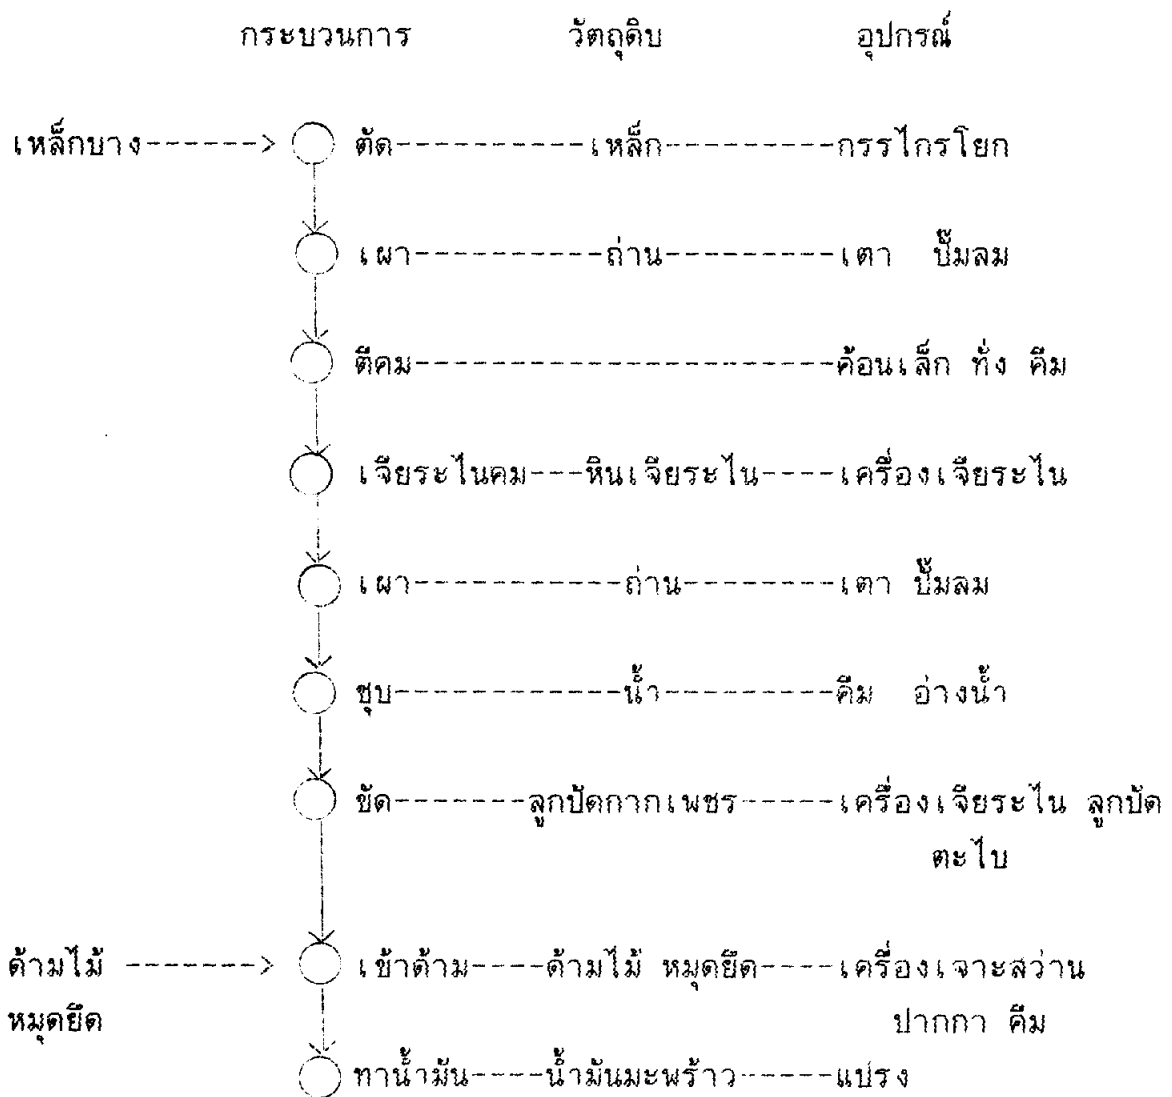 กระบวนการ วัตถุดิบ อุปกรณ์
เหล็กบาง------> ตัด----------เหล็ก---------กรรไกรโยก
เผา----------ถ่าน---------เตา ปั๊มลม
ตีคม----------------------ค้อนเล็ก ทั่ง คีม
เจียระไนคม---หินเจียระไน----เครื่องเจียระไน
เผา-----------ถ่าน--------เตา ปั๊มลม
ชุบ------------น้ำ---------คีม อ่างน้ำ
ขัด-------ลูกปัดกากเพชร-----เครื่องเจียระไน ลูกปัด
ตะไบ
ด้ามไม้ -------> เข้าด้าม----ด้ามไม้ หมุดยึด----เครื่องเจาะสว่าน
หมุดยึด ปากกา คีม
ทาน้ำมัน----น้ำมันมะพร้าว-----แปรง